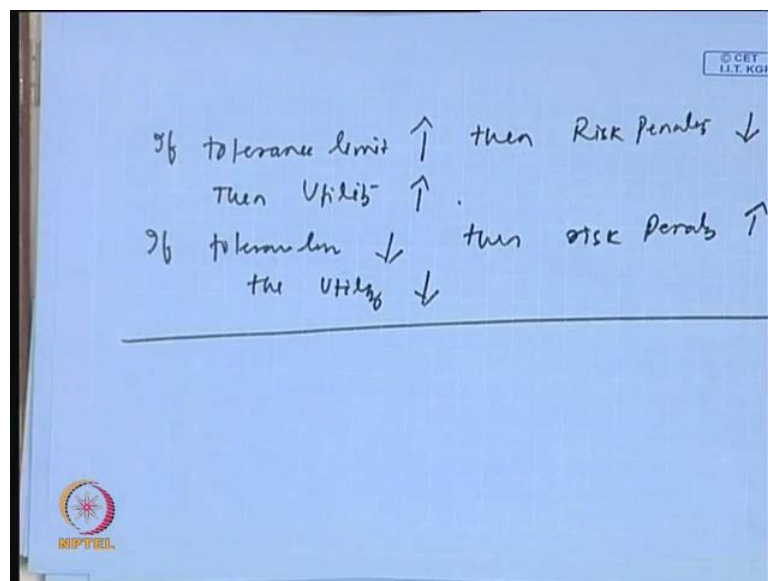 © CET
I.I.T. KGP
If tolerance limit ↑ then Risk Penalty ↓
Then Utility ↑ .
If ↓ then risk Penalty ↑
the Utility ↓
NPTEL